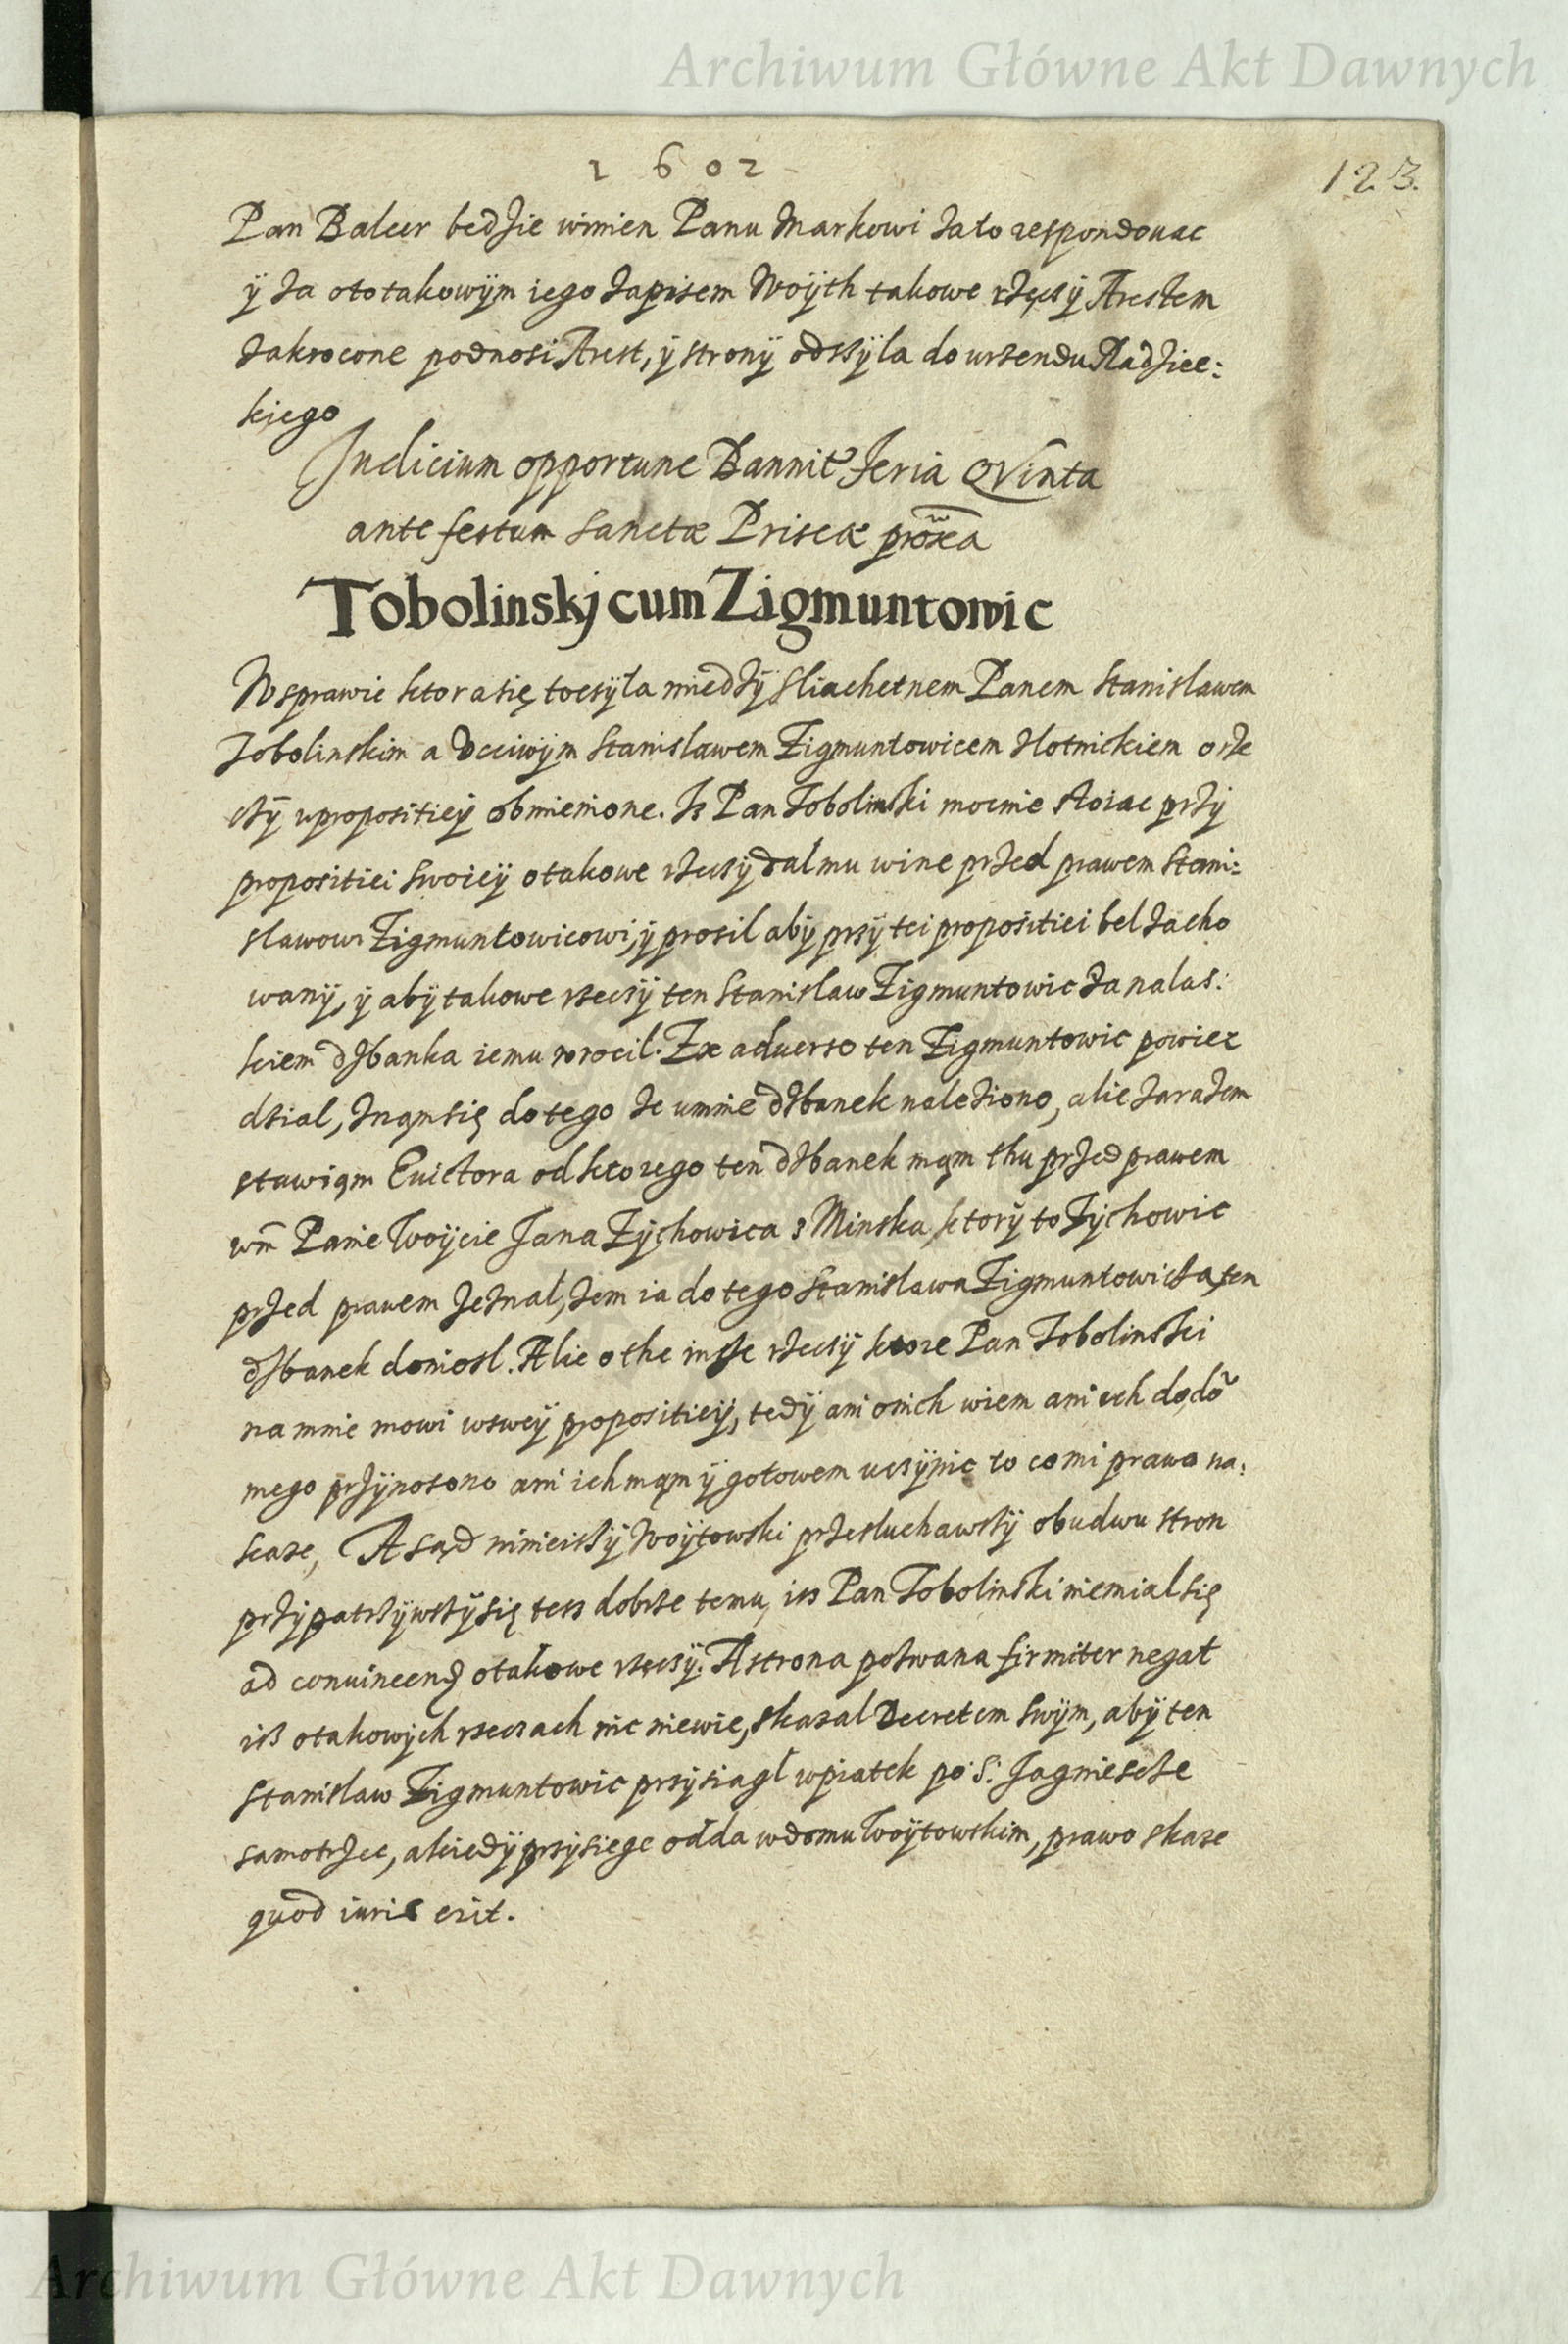 Archiwum Główne Akt Dawnych
1602
123.
Pan Balcer bedzie winien Panu Markowi zato respondouac
ÿ za ototakowÿm iego zapisem Woÿth takowe rzęcsÿ Arestem
zakrocone podnosi Arest, ÿ stronÿ odsÿla do urzendu Radziec:
kiego
Judicium opportune Bannit Feria QVinta
ante festum Sanctæ Priscæ proxa
Tobolinskj cum Zigmuntowic
W sprawie ktora się tocsÿla miedzÿ Sliachetnem Panem Stanislawem
Tobolinskim a Vcciwÿm Stanislawem Zigmuntowicem zlotnickiem o rze
csÿ w propositieÿ obmienione. Js Pan Tobolinski mocnie stoiac przÿ
propositiei swoieÿ o takowe rzecsÿ dal mu wine przed prawem Stani:
slawowi Zigmuntowicowi, ÿ prosil abÿ przÿ tei propositiei bel zacho
wanÿ, ÿ abÿ takowe rzecsÿ ten Stanislaw Zigmuntowic za nalas:
kiem dzbanka iemu wrocil. Ex aduerso ten Zigmuntowic powiez
dzial, znąm się do tego ze u mnie dzbanek naleziono, alie zarazem
stawiąm Euictora od ktorego ten dzbanek mąm thu przed prawem
wm̃ Panie Woÿcie Jana Zÿchowica z Minska, ktorÿ to Zÿchowic
przed prawem zeznal, zem ia do tego Stanislawa Zigmuntowicza, ten
dzbanek doniosl. Alie o the insze rzecsÿ ktore Pan Tobolinski
na mnie mowi w sweÿ propositieÿ, tedÿ ani o nich wiem ani ich do dõ
mego przÿnosono ani ich mąm ÿ gotowem ucsÿnic to co mi prawo na:
kaze, A sąd ninieisÿ Woÿtowski przesluchawszÿ obudwu stron
przÿpatrzÿwszÿ się tess dobrze temu, iss Pan Tobolinski niemial się
ad conuincend otakowe rzecsÿ. A strona pozwana firmiter negat
iss otakowÿch rzeczach nic niewie, skazal Decretem swÿm, abÿ ten
Stanislaw Zigmuntowic przÿsiagl w piatek po S: Jagniescze
samotrzec, a kiedÿ przÿsiege odda w domu Woÿtowskim, prawo skaze
quod iuris erit.
Archiwum Główne Akt Dawnych